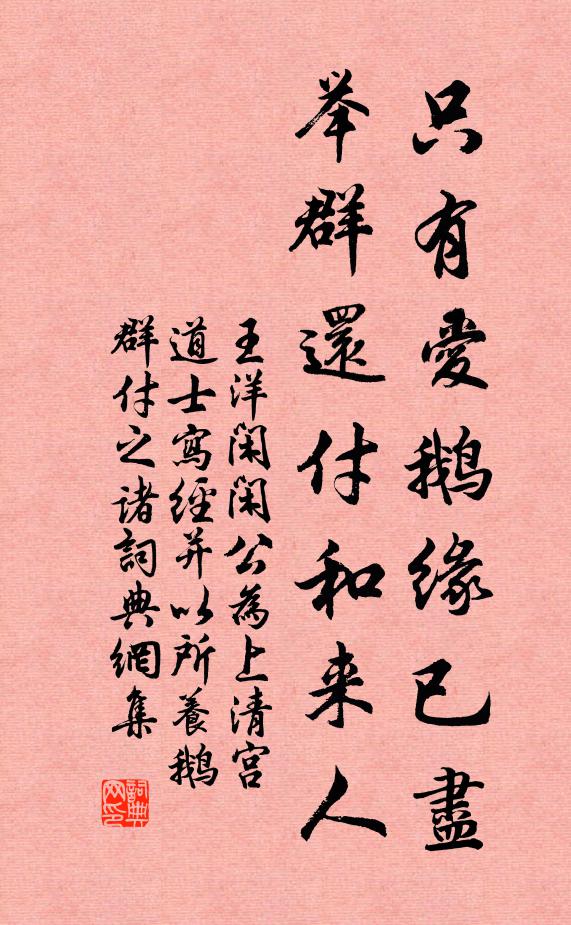 只有愛鹅緣已盡
举群還付和来人
王洋閑閑公為上清宫
道士寫經并以所養鹅
群付之诸詞典網集
詞典网印